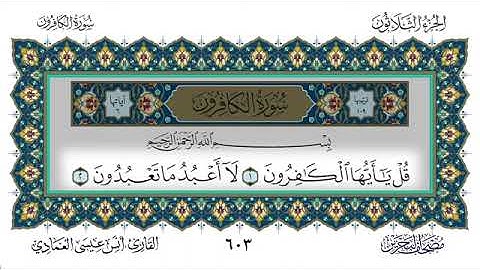 الجزء الثلاثون
سورة الكافرون
ترتيبها ١٠٩
سُورَةُ الكَافِرُونَ
آياتها ٦
بِسْمِ اللَّهِ الرَّحْمَٰنِ الرَّحِيمِ
قُلْ يَٰٓأَيُّهَا ٱلْكَٰفِرُونَ ۝١ لَآ أَعْبُدُ مَا تَعْبُدُونَ ۝٢
مصحف البحرين
٦٠٣
القارئ أنس عيسى العمادي